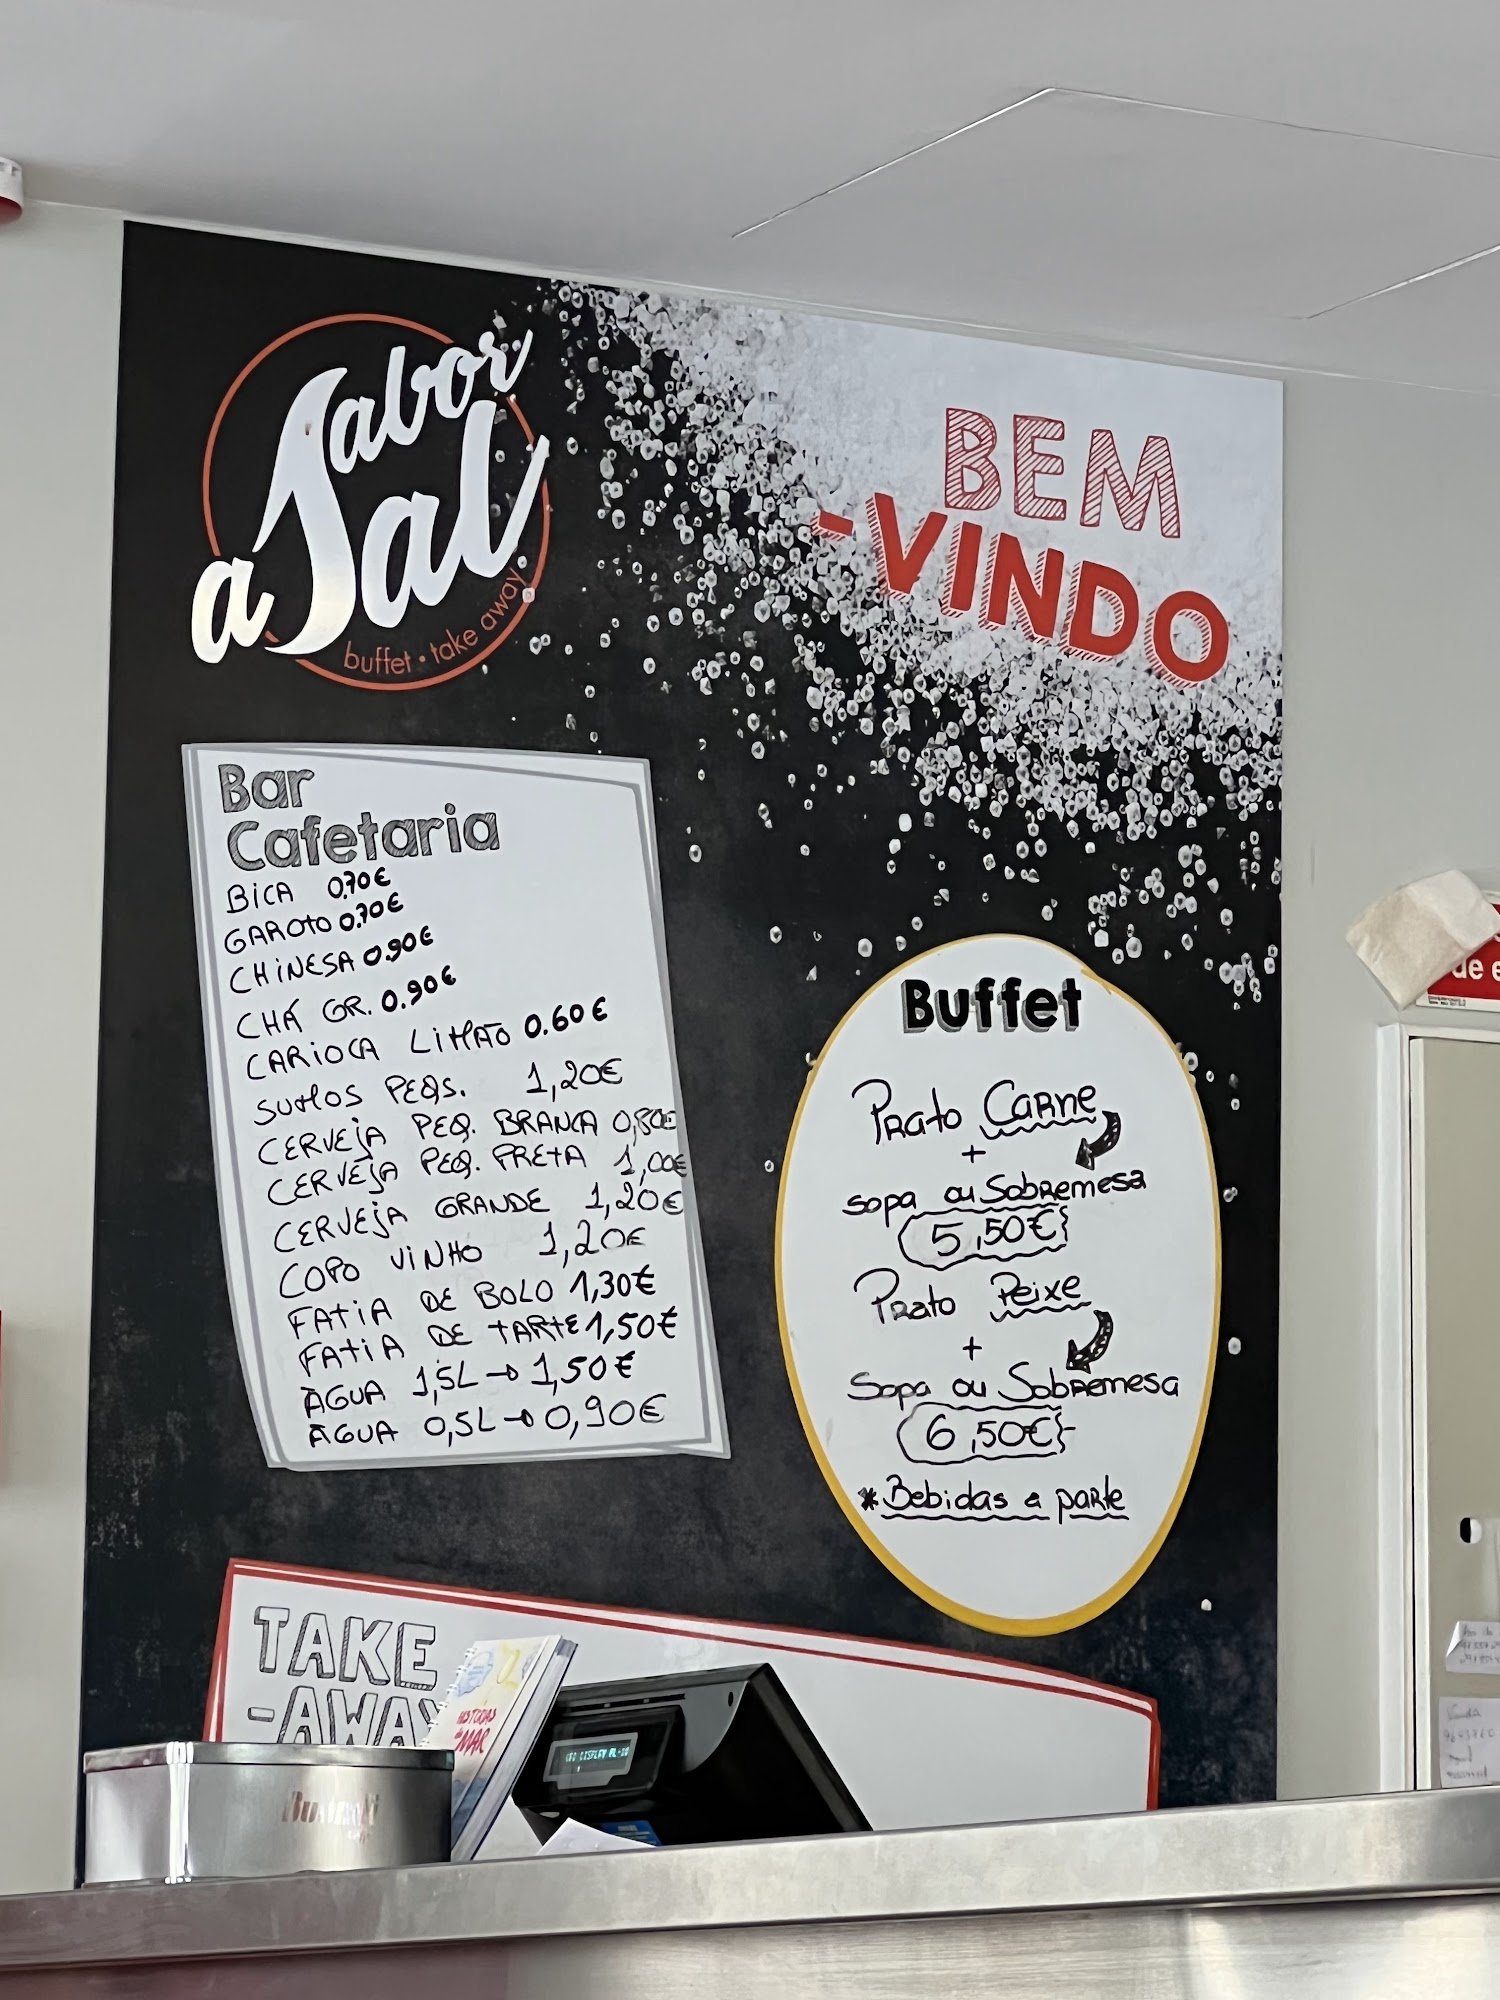 Sabor
a Sal
buffet • take away
BEM
-VINDO
Bar
Cafetaria
BICA 0,70€
GAROTO 0.70€
CHINESA 0.90€
CHÁ GR. 0.90€
CARIOCA LIMÃO 0.60€
SUMOS PEQS. 1,20€
CERVEJA PEQ. BRANCA 0,80€
CERVEJA PEQ. PRETA 1,00€
CERVEJA GRANDE 1,20€
COPO VINHO 1,20€
FATIA DE BOLO 1,30€
FATIA DE TARTE 1,50€
ÁGUA 1,5L → 1,50€
ÁGUA 0,5L → 0,90€
Buffet
Prato Carne
+
Sopa ou Sobremesa
5,50€
Prato Peixe
+
Sopa ou Sobremesa
6,50€
*Bebidas a parte
TAKE
-AWAY
HISTÓRIAS
MAR
de e